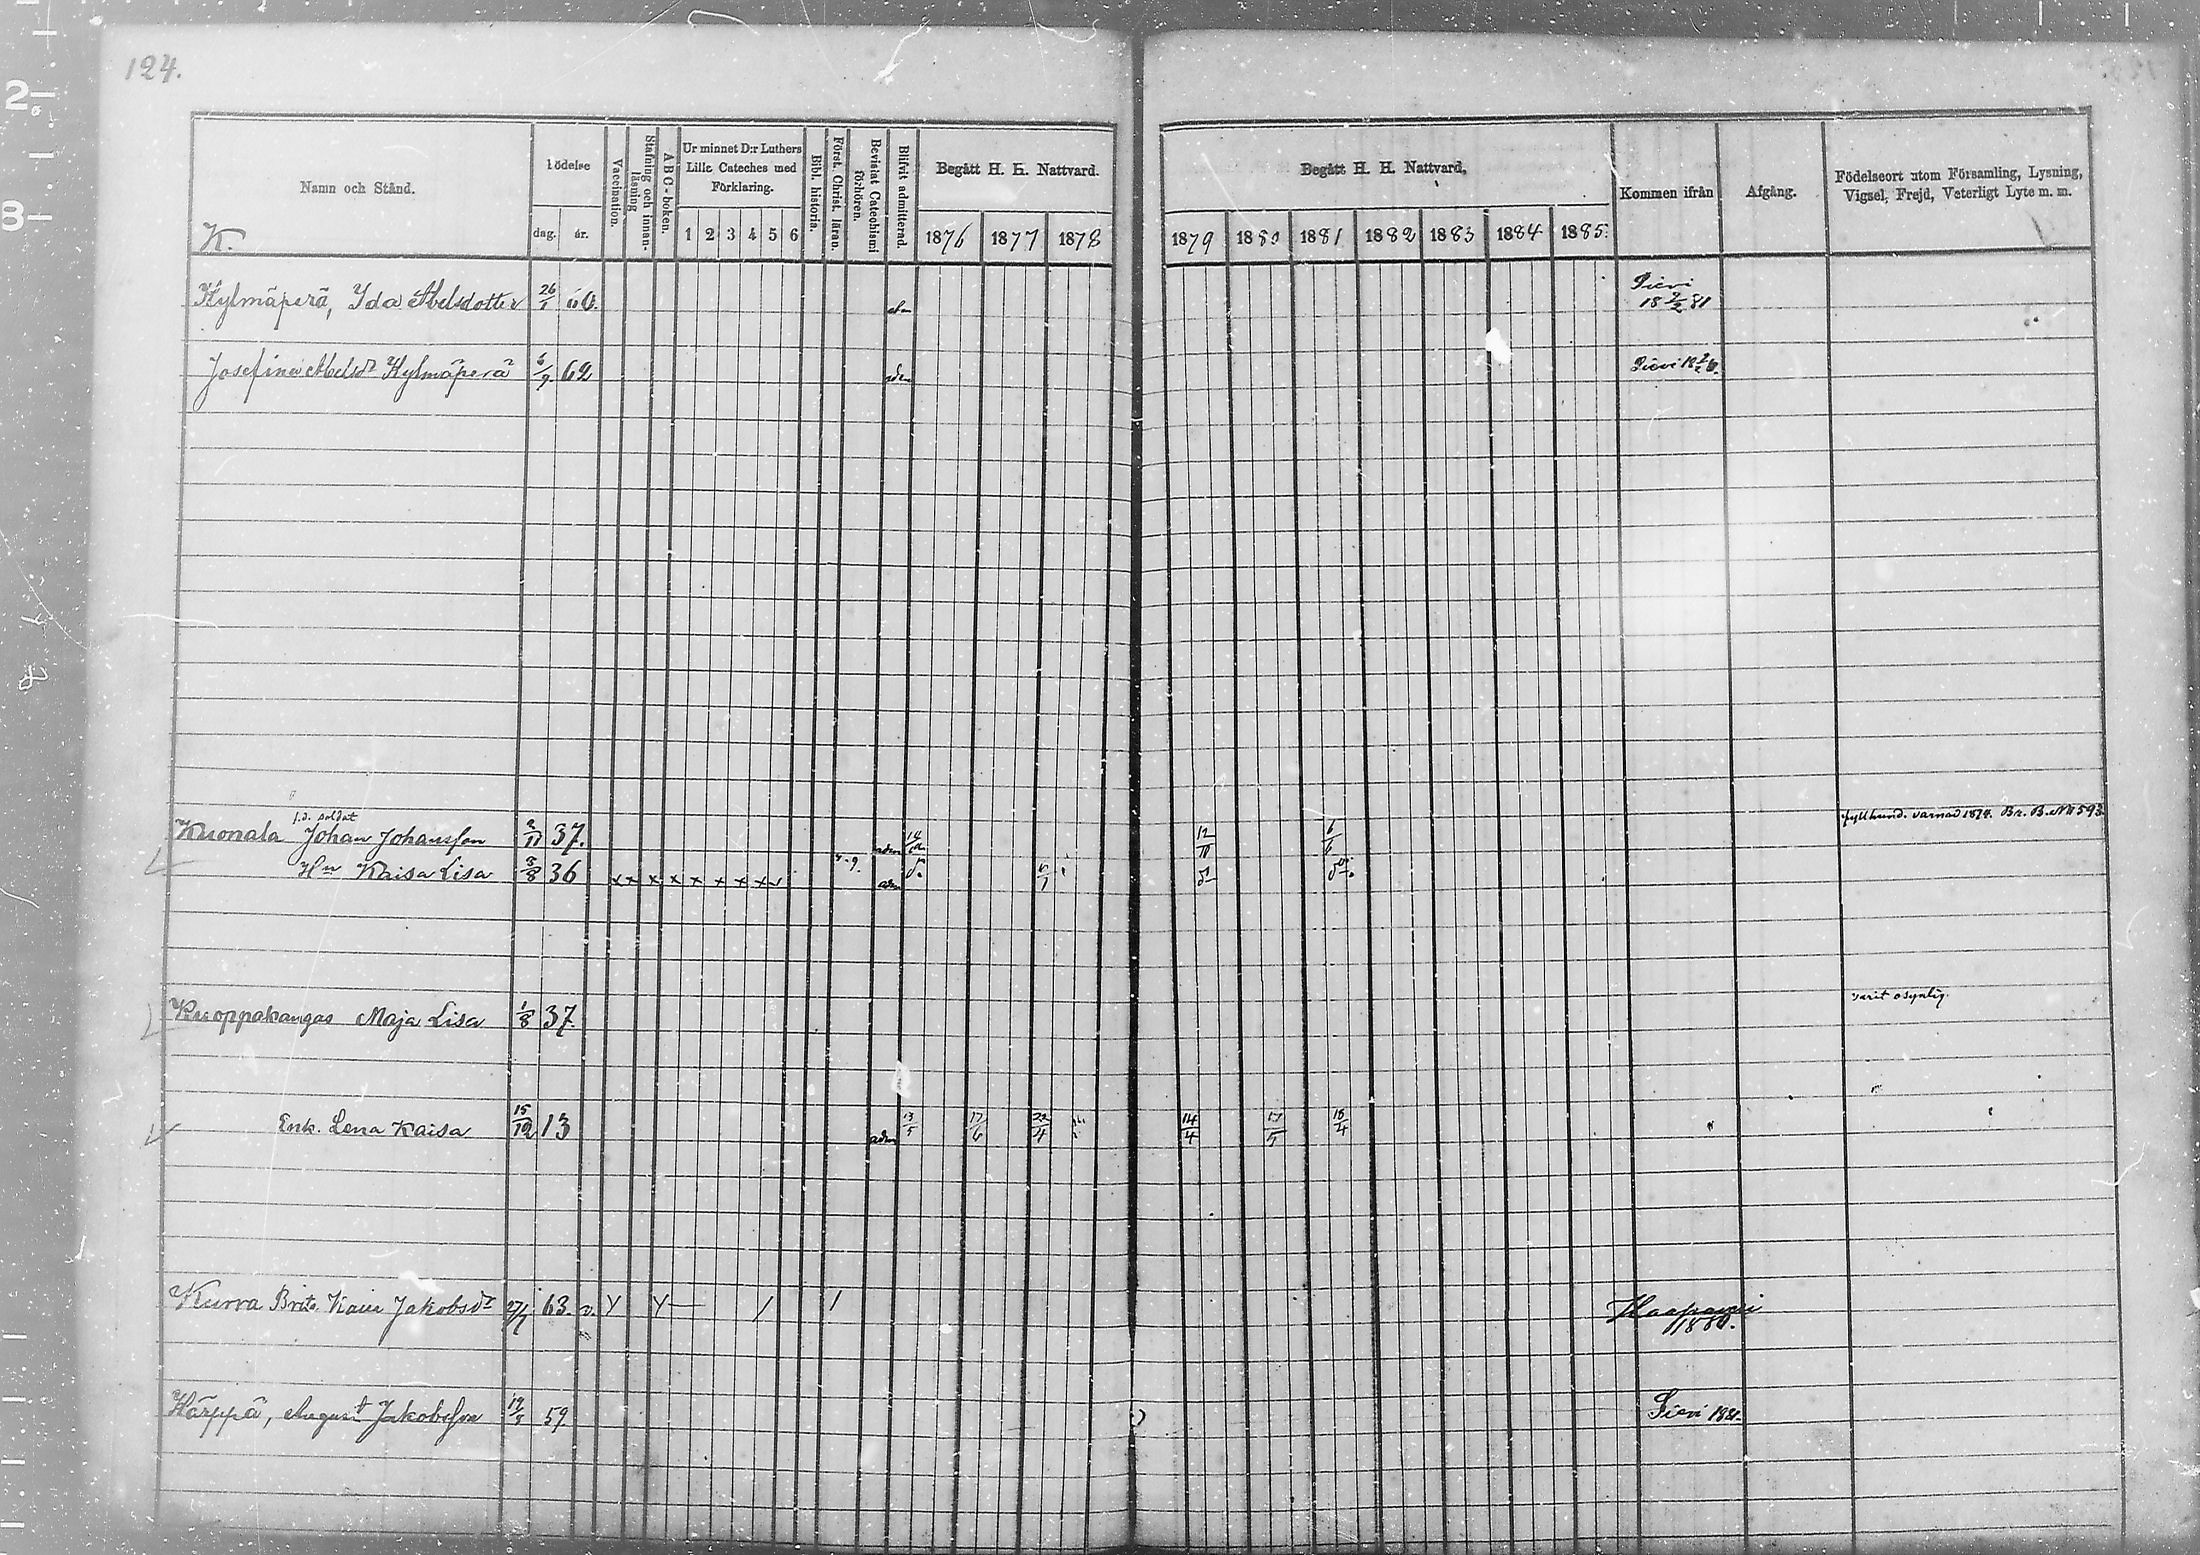 124.
Namn och Stånd.
K.
Födelse
dag.
år.
Vaccination.
Stafning och innan-läsning
ABC-boken.
Ur minnet D:r Luthers Lille Cateches med Förklaring.
1 2 3 4 5 6
Bibl. historia.
Först. Christ. läran.
Bevistat Catechismi förhören.
Blifvit admitterad.
Begått H. H. Nattvard.
1876 1877 1878
Begått H. H. Nattvard.
1879 1880 1881 1882 1883 1884 1885.
Kommen ifrån
Afgång.
Födelseort utom Församling, Lysning, Vigsel, Frejd, Veterligt Lyte m. m.
Kylmäperä, Ida Abelsdotter 26/1 60. Sievi
18 2/2 81
Josefina Abelsdr Kylmäperä 6/9 62 adm Sievi
f.d. soldat fyllhund. varnad 1874. Br. B. No 593
Kuonala Johan Johansson 37. adm 12/10 6/6
Hu Kaisa Lisa 8/8 36 x x x x x x x x adm
Kuoppakangas Maja Lisa 1/8 37. varit osynlig.
Enk. Lena Kaisa 15/12 13 adm 13/5 17/6 22/4 14/4 17/5 18/4
Kurra Brita Kaisa Jakobsdr 27/1 63. v. Haapavesi
1880.
Härppä, August Jakobsson 19/5 59 Sievi 1881.